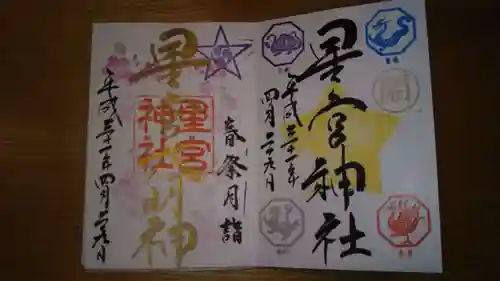 星宮神社
平成三十一年
四月二十九日
春祭月詣
星宮
神社
明神
平成三十一年四月二十九日